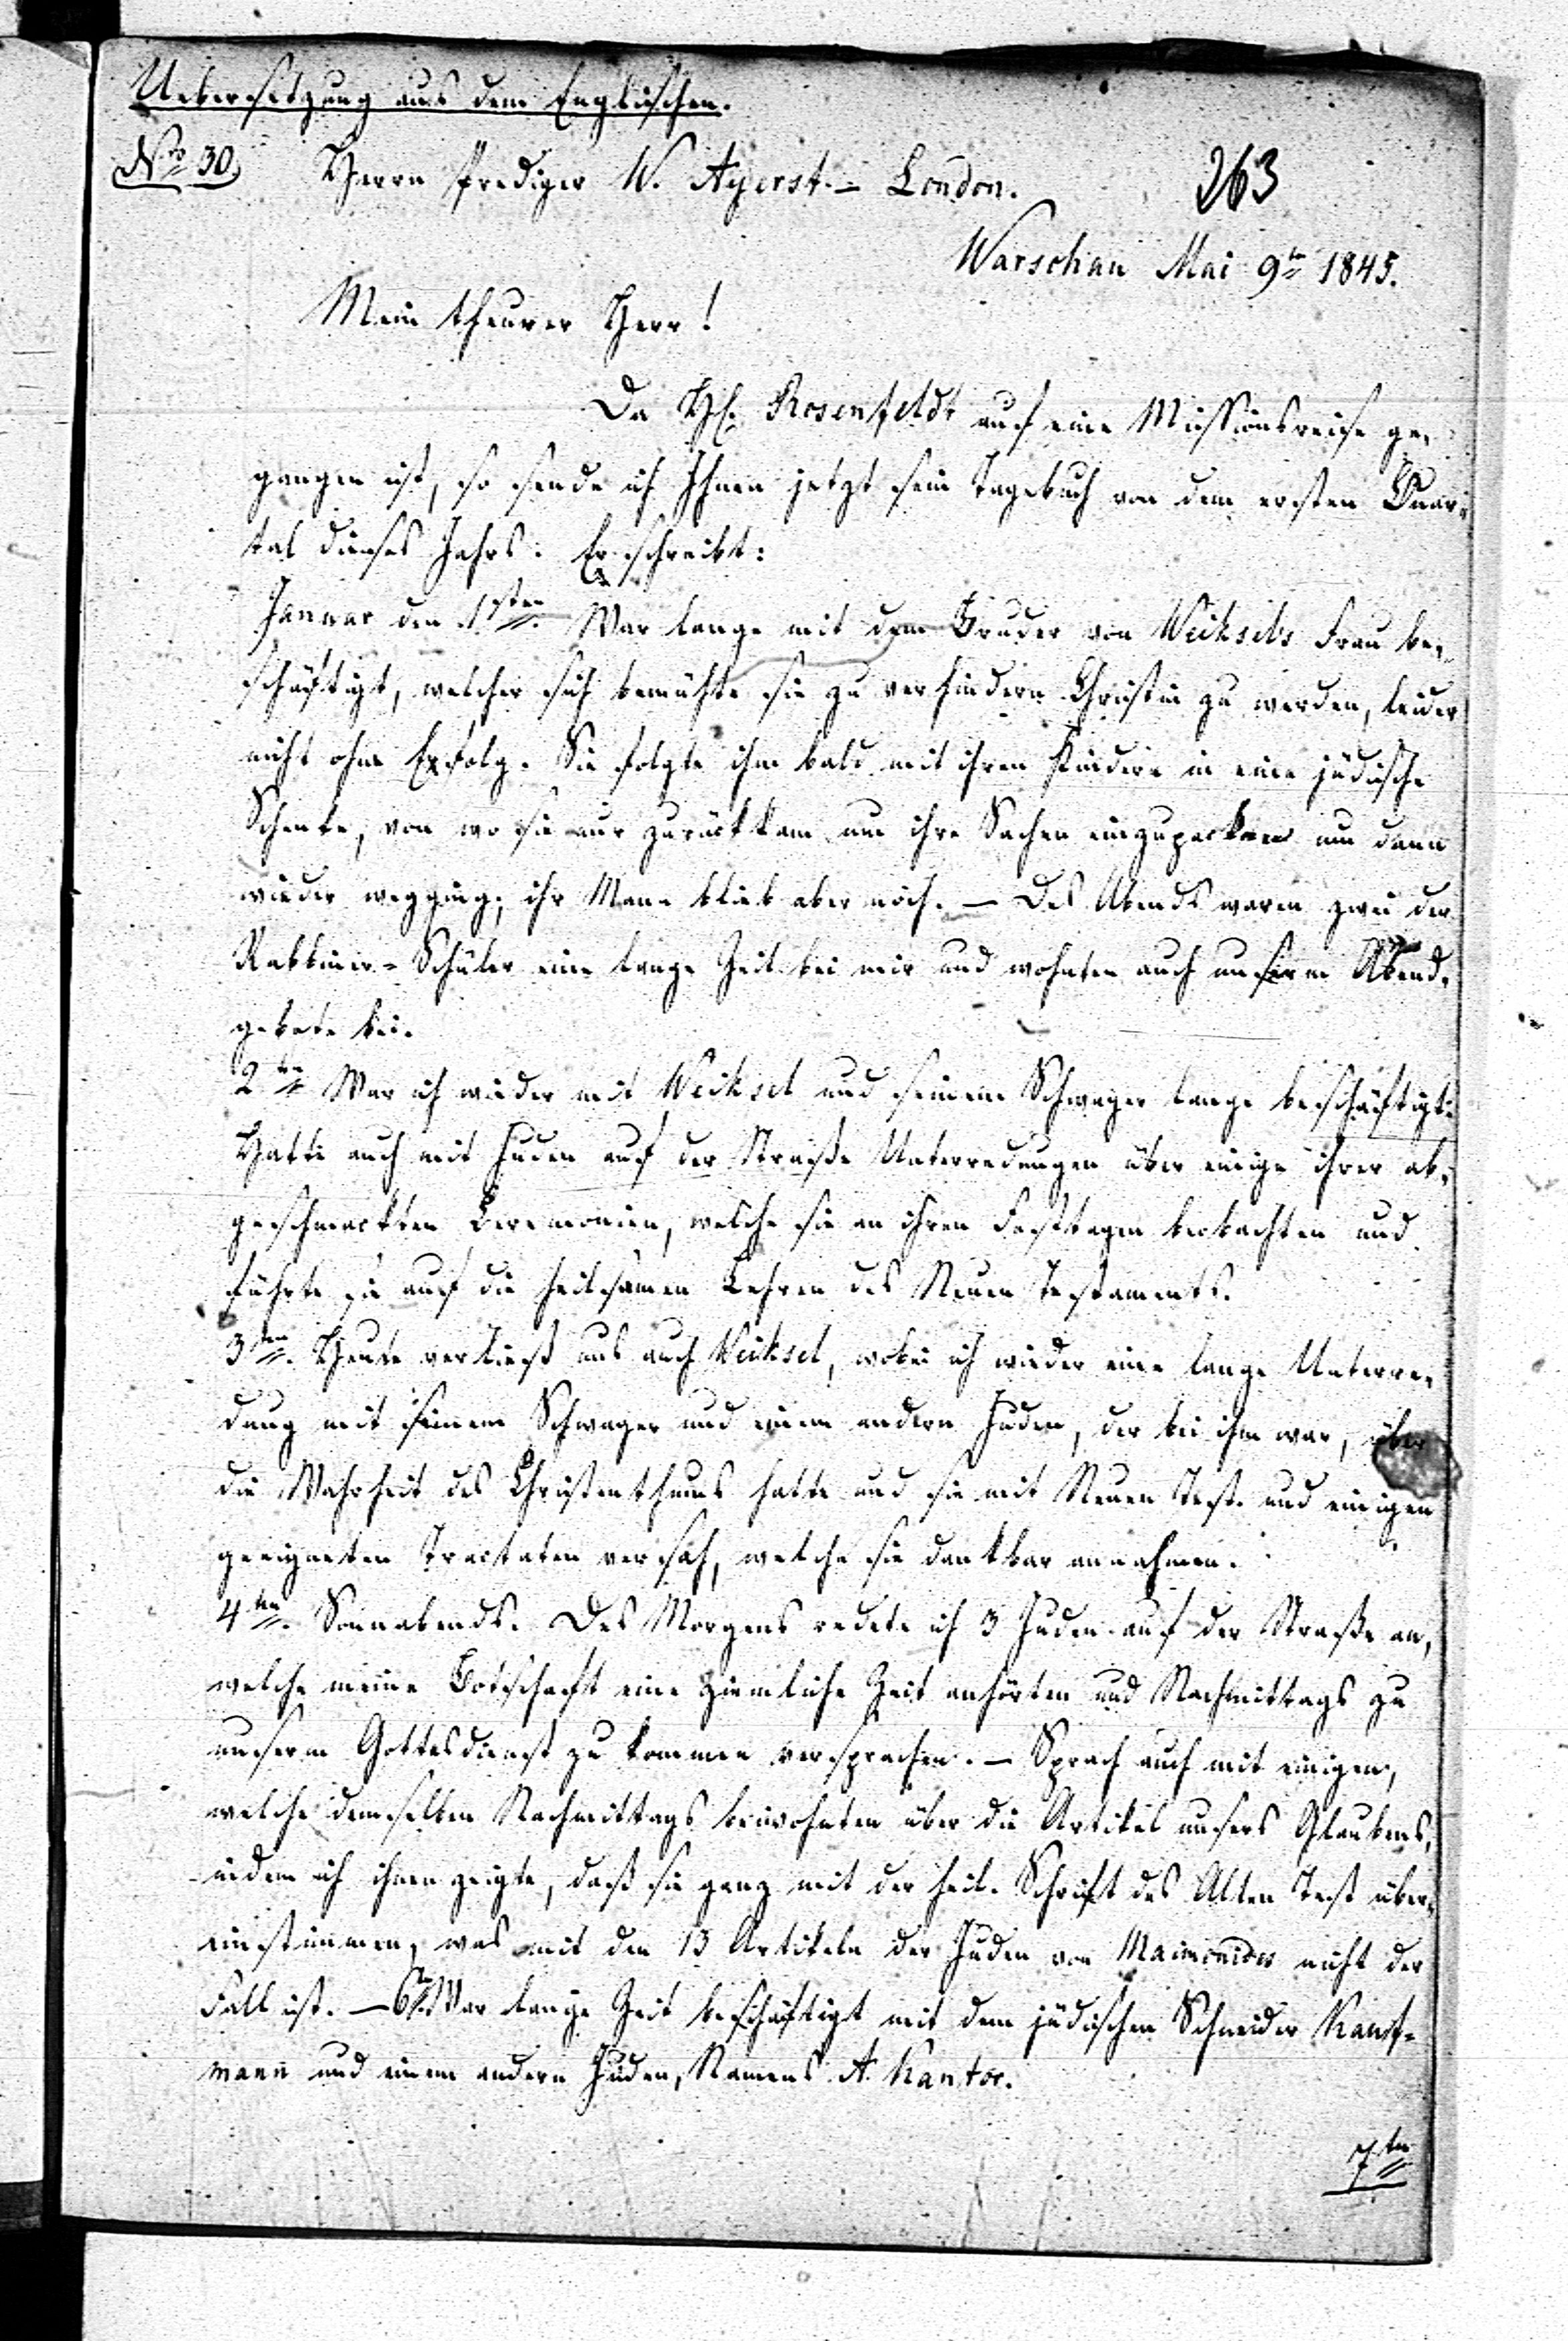 Uebersetzung aus dem Englischen.
No 30. Herrn Prediger W. Ayerst. – London. 263
Warschau Mai 9te 1845.
Mein theurer Herr!
Da H. Rosenfeldt auf eine Missionsreise ge-
gangen ist, so sende ich Ihnen jetzt sein Tagebuch von dem ersten Quar-
tal dieses Jahrs. Er schreibt:
Januar den 1sten. War lange mit dem Bruder von Weiksels Frau be-
schäftigt, welcher sich bemühte sie zu verhindern Christin zu werden, leider
nicht ohne Erfolg. Sie folgte ihm bald mit ihren Kindern in eine jüdische
Schenke, von wo sie nur zurückkam um ihre Sachen einzupacken um dann
wieder wegging; ihr Mann blieb aber noch. – Des Abends waren zwei der
Rabbiner-Schüler eine lange Zeit bei mir und wohnten auch unserm Abend-
gebete bei.
2ten War ich wieder mit Weiksel und seinem Schwager lange beschäftigt.
Hatte auch mit Juden auf der Straße Unterredungen über einige ihrer ab-
geschmackten Ceremonien, welche sie an ihren Festtagen beobachten und
führte sie auf die heilsamen Lehren des Neuen Testaments.
3ten. Heute verließ uns auch Weiksel, wobei ich wieder eine lange Unterre-
dung mit seinem Schwager und einem andern Juden, der bei ihm war, über
die Wahrheit des Christenthums hatte und sie mit Neuen Test. und einigen
geeigneten Tractaten versah, welche sie dankbar annahmen.
4ten. Sonnabends. Des Morgens redete ich 3 Juden auf der Straße an,
welche meine Botschaft eine ziemliche Zeit anhörten und Nachmittags zu
unserm Gottesdienst zu kommen versprachen. – Sprach auch mit einigen,
welche demselben Nachmittags beiwohnten über die Artikel unsers Glaubens,
indem ich ihnen zeigte, daß sie ganz mit der heil. Schrift des Alten Test über-
einstimmen, was mit den 13 Artikeln der Juden von Maimonides nicht der
Fall ist. – 6te. War lange Zeit beschäftigt mit dem jüdischen Schneider Kauf-
mann und einem andern Juden, Namens A. Kantor.
7ten